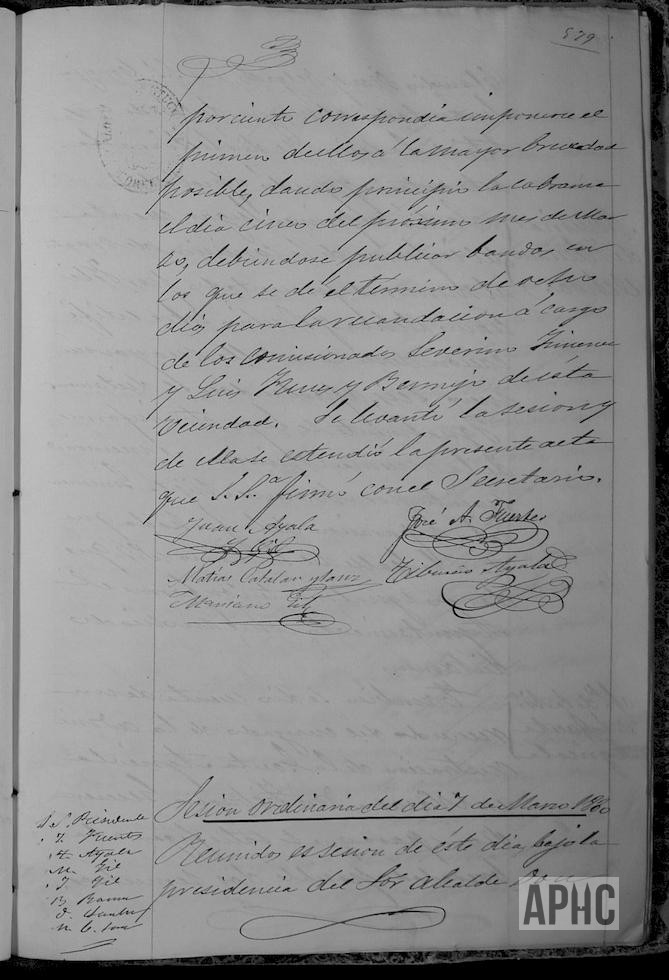 579
por ciento correspondia imponerse el
primer de ellos á la mayor brevedad
posible, dando principio la cobranza
el dia cinco del próximo mes de Mar
zo, debiendose publicar bandos en
los que se dé el termino de ocho
dias para la recaudacion á cargo
de los comisionados Severino Gimenez
y Luis Funes y Bermejo de esta
Vecindad. Se levantó la sesion y
de ella se estendió la presente acta
que S. S.ª firmó con el Secretario.
Juan Ayala José A. Fuertes
J. Gil
Matías Catalan y Sanz Tiburcio Ayala
Mariano Gil
Sesion ordinaria del dia 7 de Marzo
Reunidos en sesion de éste dia, bajo la
presidencia del Sor Alcalde
S. Presidente
J. Fuertes
T. Ayala
M. Gil
J. Gil
M. C.
APHC